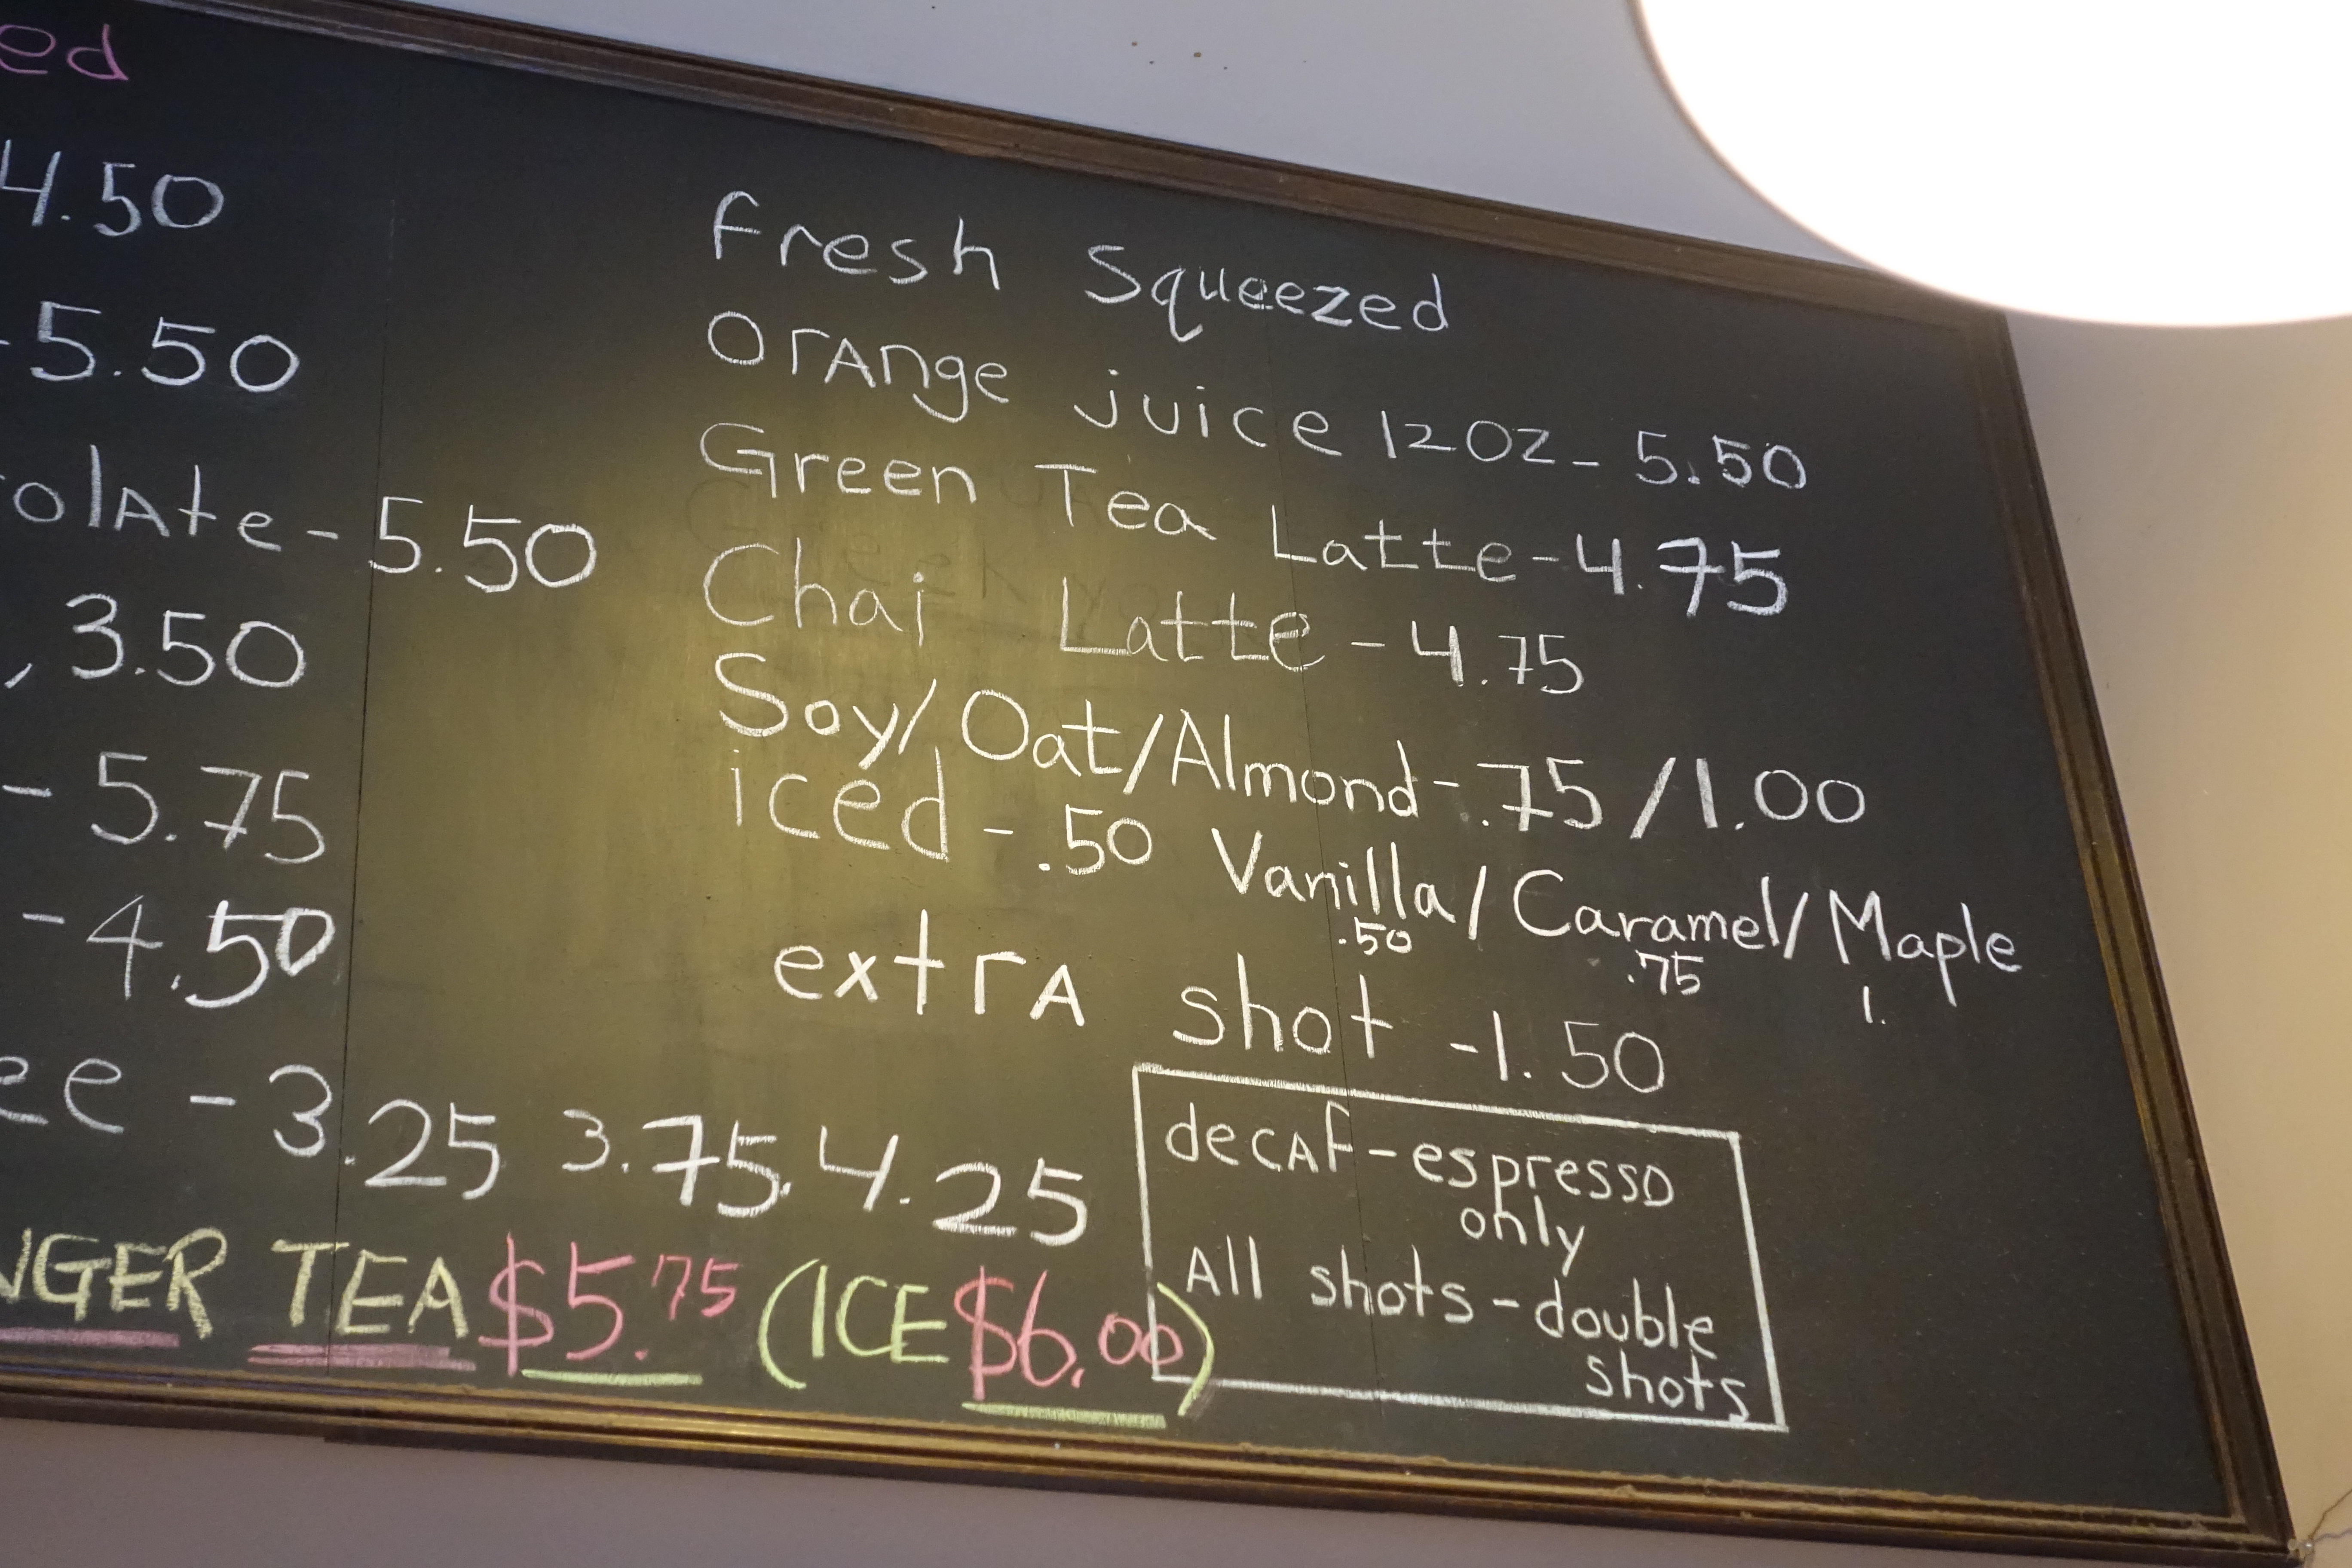 ed
4.50
-5.50
olAte-5.50
, 3.50
- 5.75
-4.50
ee -3.25 3.75, 4.25
NGER TEA $5.75 (ICE $6.00)
fresh Squeezed
OrAnge juice 12OZ- 5.50
Green Tea Latte-4.75
Chai Latte-4.75
Soy/Oat/Almond-.75/1.00
iced-.50 Vanilla/Caramel/Maple
.50 .75 1.
extrA shot -1.50
decAf-espresso
only
All shots-double
shots